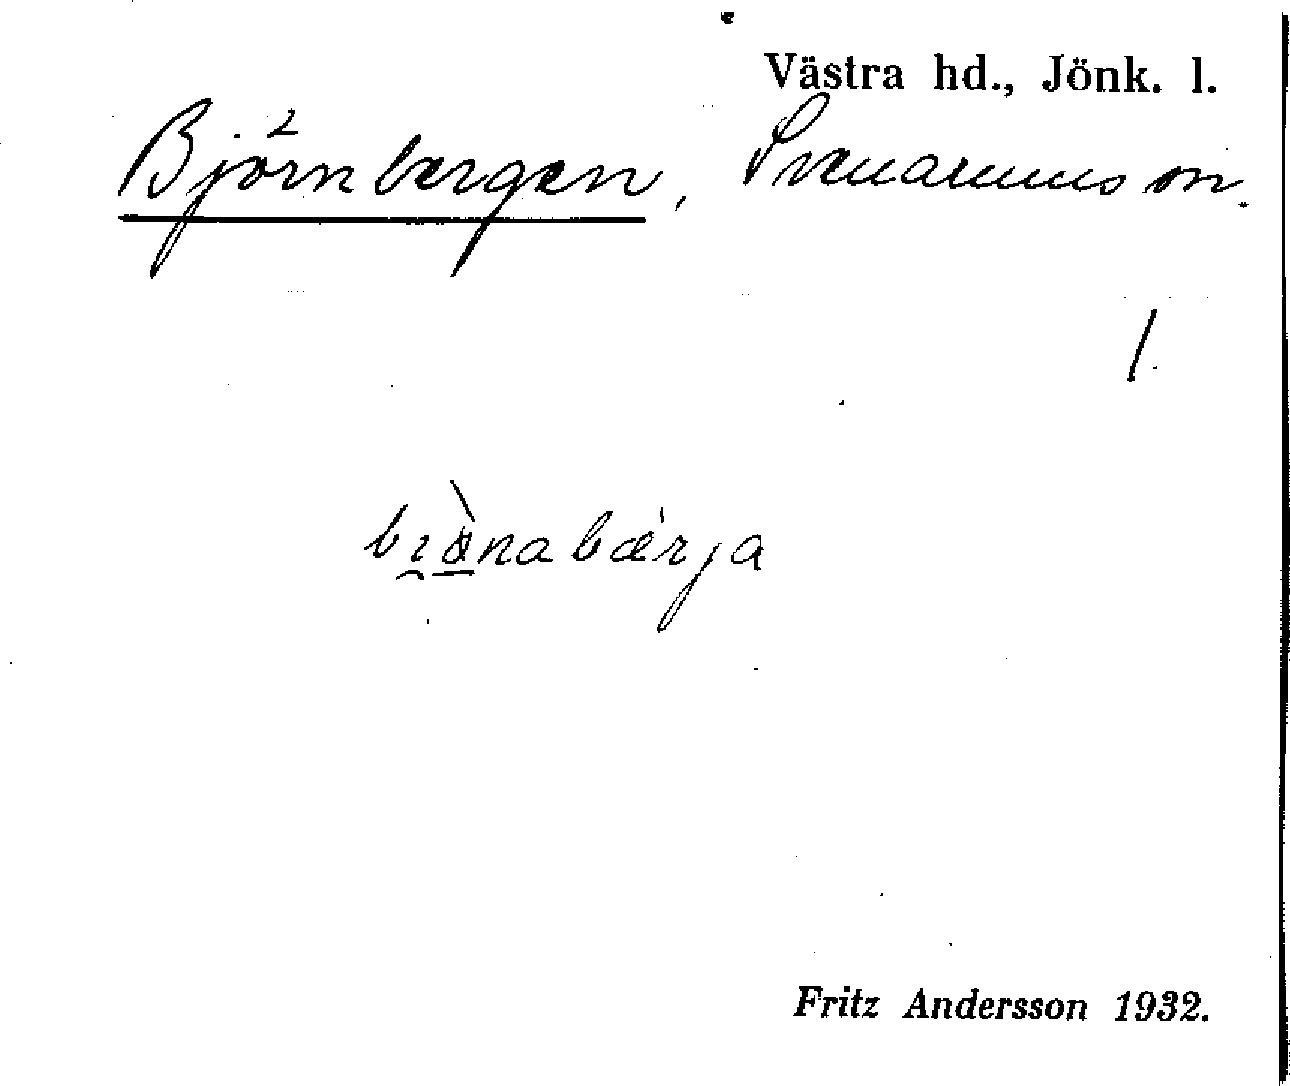 Västra hd., Jönk. l.
Björnbergen, Svenarums sn.
1
bıönabärja
Fritz Andersson 1932.